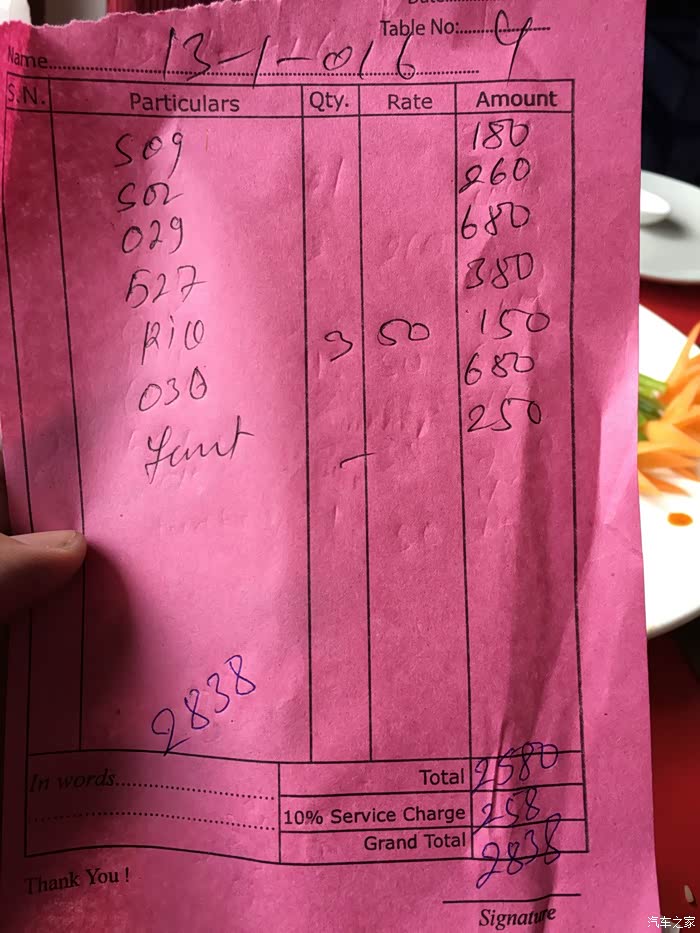 Table No:............ 9
Name............ 13-1-016
S.N. Particulars Qty. Rate Amount
S09 180
S02 260
029 680
527 380
Rice 3 50 150
030 680
250
2838
In words............
Total 2580
10% Service Charge 258
Grand Total 2838
Thank You !
Signature
汽车之家